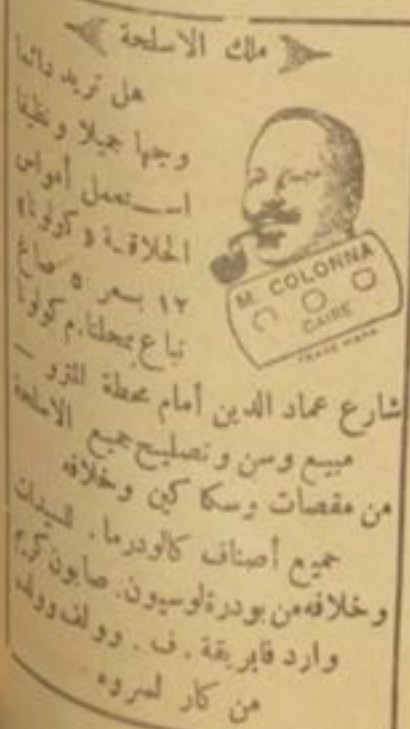 ملك الاسلحة
هل تريد دائما
وجها جميلا ونظيفا
استعمل أمواس
الحلاقة « كولونا »
١٢ بسعر ٥ صاغ
تباع بمحلنا. م كولونا
M. COLONNA
CAIRE
TRADE MARK
شارع عماد الدين أمام محطة المترو —
مبيع وسن وتصليح جميع الاسلحة
من مقصات وسكاكين وخلافه
جميع أصناف كالودرما. للسيدات
وخلافه من بودرة لوسيون. صابون كريم
وارد فابريقة. ف. وولف وولده
من كار لسروه